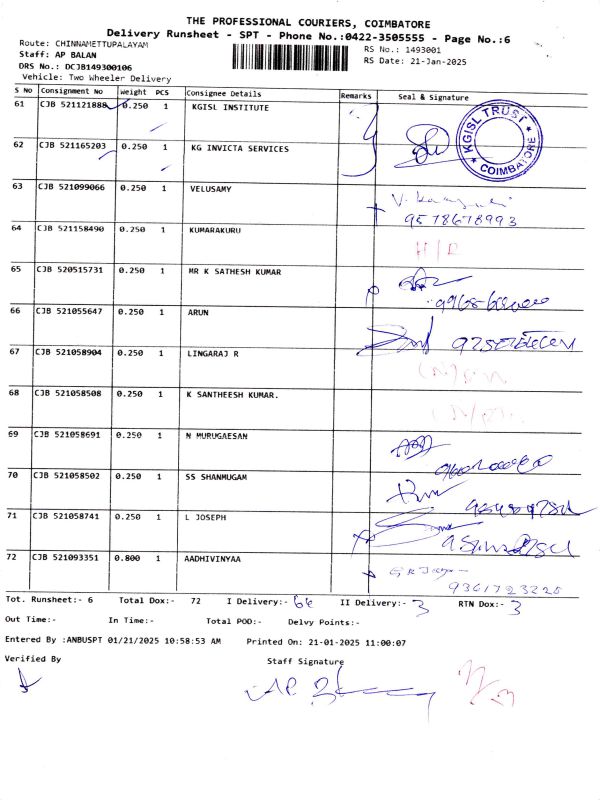 THE PROFESSIONAL COURIERS, COIMBATORE
Delivery Runsheet - SPT - Phone No.:0422-3505555 - Page No.:6
Route: CHINNAMETTUPALAYAM RS No.: 1493001
Staff: AP BALAN RS Date: 21-Jan-2025
DRS No.: DCJB149300106
Vehicle: Two Wheeler Delivery
S No Consignment No Weight PCS Consignee Details Remarks Seal & Signature
61 CJB 521121888 0.250 1 KGISL INSTITUTE
KGISL TRUST
* COIMBATORE *
62 CJB 521165203 0.250 1 KG INVICTA SERVICES
63 CJB 521099066 0.250 1 VELUSAMY
9578678993
64 CJB 521158490 0.250 1 KUMARAKURU
H/R
65 CJB 520515731 0.250 1 MR K SATHESH KUMAR
66 CJB 521055647 0.250 1 ARUN
67 CJB 521058904 0.250 1 LINGARAJ R
68 CJB 521058508 0.250 1 K SANTHEESH KUMAR.
69 CJB 521058691 0.250 1 N MURUGAESAN
70 CJB 521058502 0.250 1 SS SHANMUGAM
71 CJB 521058741 0.250 1 L JOSEPH
72 CJB 521093351 0.800 1 AADHIVINYAA
9361723220
Tot. Runsheet:- 6 Total Dox:- 72 I Delivery:- 66 II Delivery:- 3 RTN Dox:- 3
Out Time:- In Time:- Total POD:- Delvy Points:-
Entered By :ANBUSPT 01/21/2025 10:58:53 AM Printed On: 21-01-2025 11:00:07
Verified By Staff Signature